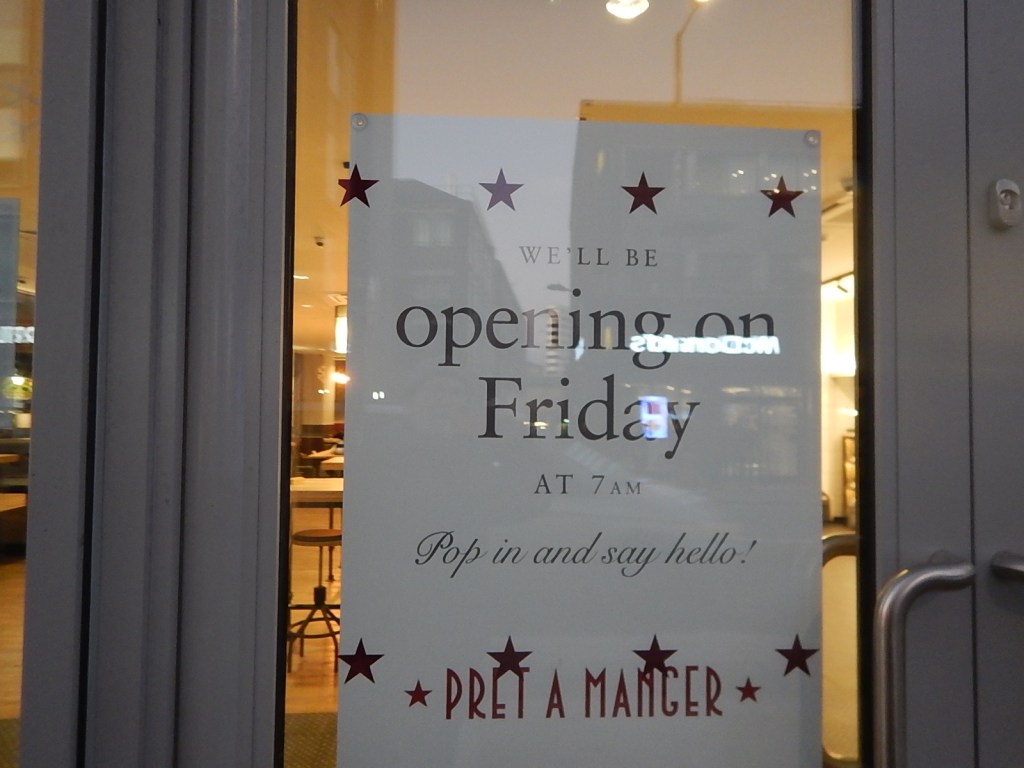 WE'LL BE
opening on
McDonald's
Friday
AT 7AM
Pop in and say hello!
PRET A MANGER